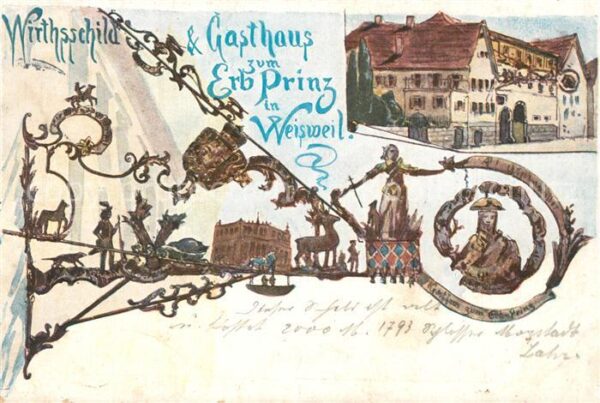 Wirthsschild & Gasthaus
zum
Erb Prinz
in
Weisweil.
Gasthaus zum Erb Prinz
Dieser Schild ist
u. kostet 2000 M. 1793 Schlosser
Lahr.